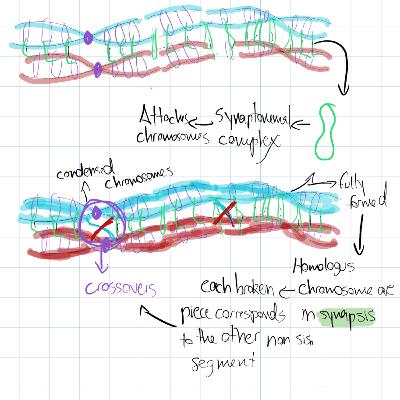 Attachs ← Synaptonemal ←
chromosomes complex
condensed
chromosomes
fully
formed
crossovers
Homologus
each broken ← chromosome are
piece corresponds in synapsis
to the other non sis
segment